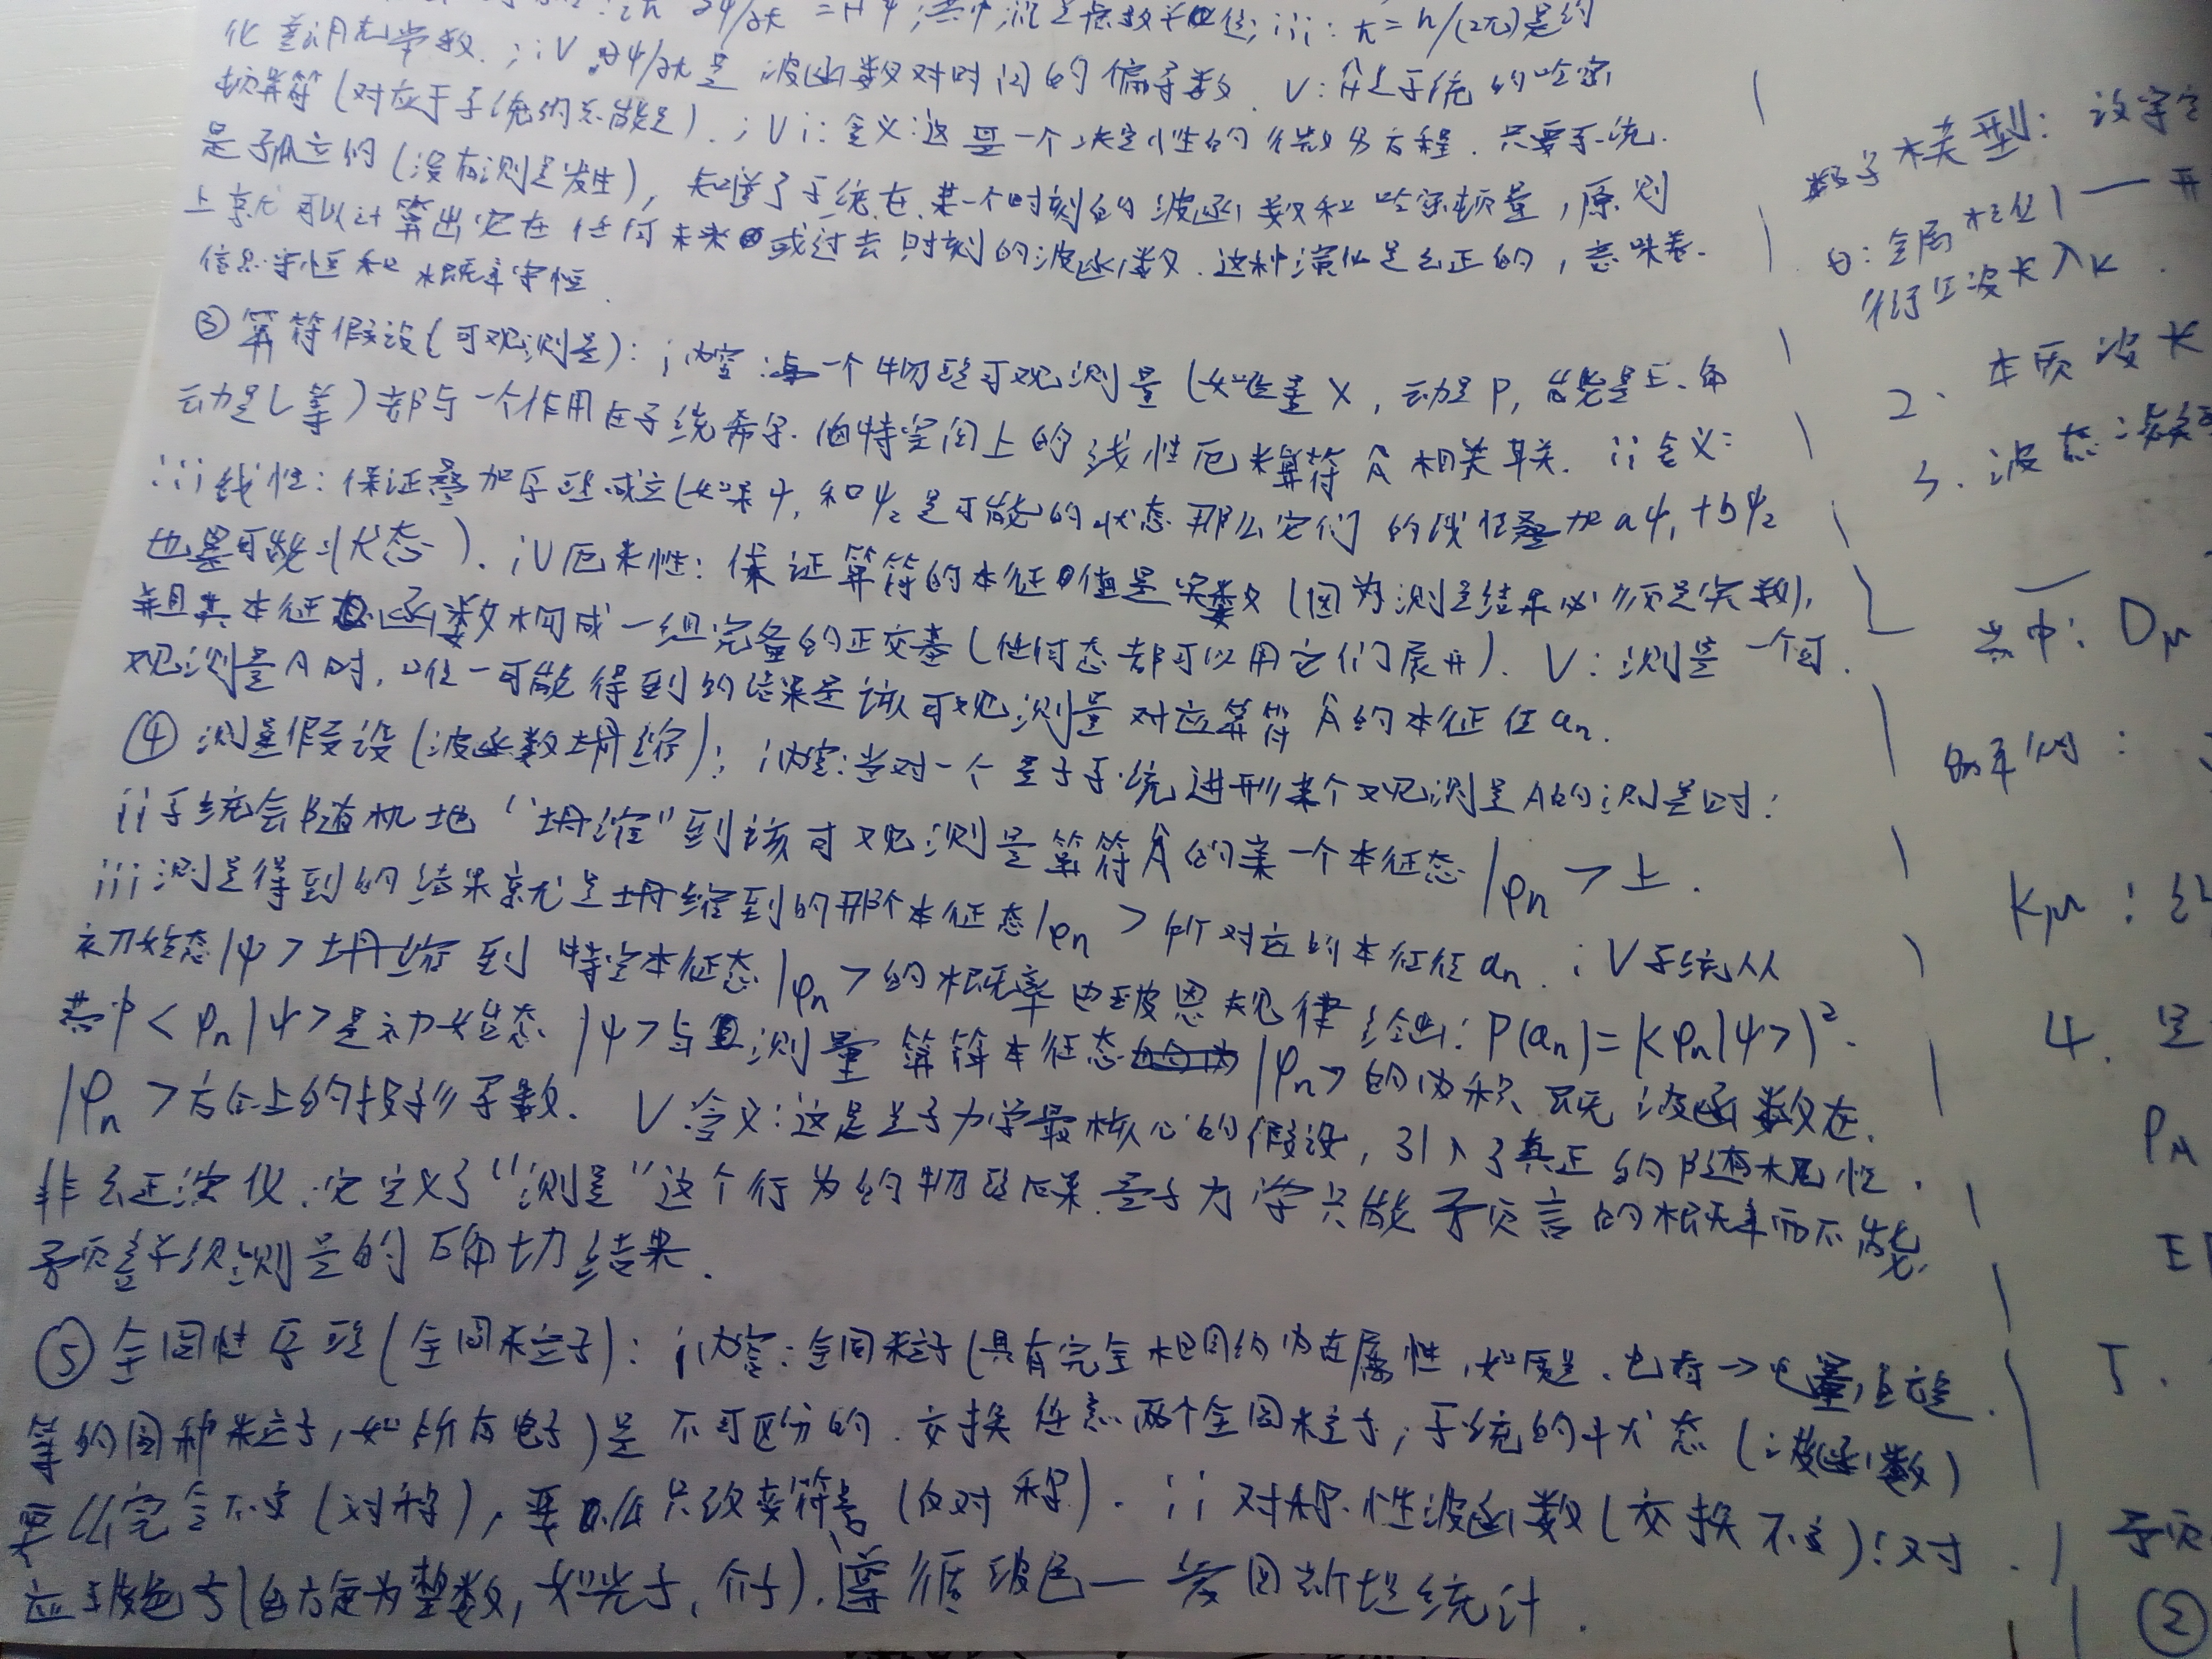 iħ ∂ψ/∂t = Ĥψ; 其中; i是虚数单位; iii: ħ = h/(2π)是约
化普朗克常数.; iV ∂ψ/∂t是 波函数对时间的偏导数. V: Ĥ是系统的哈密
顿算符(对应于系统的总能量).; Vi: 含义:这是一个决定性的微分方程. 只要系统.
是孤立的(没有测量发生), 知道了系统在某一个时刻的波函数和哈密顿量, 原则
上就可以计算出它在任何未来或过去时刻的波函数. 这种演化是幺正的, 意味着.
信息守恒和概率守恒.
③算符假设(可观测量): i内容: 每一个物理可观测量(如位置X, 动量P, 能量E、角
动量L等)都与一个作用在系统希尔.伯特空间上的线性厄米算符Â相关联. ii含义:
iii线性: 保证叠加原理成立(如果ψ₁和ψ₂是可能的状态 那么它们的线性叠加aψ₁+bψ₂
也是可能状态). iV厄米性: 保证算符的本征值是实数(因为测量结果必须是实数),
并且其本征函数构成一组完备的正交基(任何态都可以用它们展开). V: 测量一个可.
观测量A时, 唯一可能得到的结果是该可观测量对应算符Â的本征值aₙ.
④ 测量假设(波函数坍缩): i内容: 当对一个量子系统进行某个观测量A的测量时:
ii系统会随机地“坍缩”到该可观测量算符Â的某一个本征态|φₙ>上.
iii测量得到的结果就是坍缩到的那个本征态|φₙ>所对应的本征值aₙ. iV系统从
初始态|ψ>坍缩到 特定本征态|φₙ>的概率由玻恩规律给出: P(aₙ)=|<φₙ|ψ>|².
其中<φₙ|ψ>是初始态|ψ>与测量算符本征态|φₙ>的内积、既 波函数在.
|φₙ>方向上的投影系数. V含义: 这是量子力学最核心的假设, 引入了真正的随机性.
非幺正演化. 它定义了“测量”这个行为的物理后果. 量子力学只能预言的概率而不能.
预言单次测量的确切结果.
⑤全同性原理(全同粒子): i内容: 全同粒子(具有完全相同的内在属性, 如质量、电荷→电量, 自旋.
等的同种粒子, 如所有电子)是 不可区分的. 交换任意两个全同粒子, 系统的状态(波函数)
要么完全不变(对称), 要么只改变符号(反对称). ii对称性波函数(交换不变): 对.
应玻色子(自旋为整数, 如光子、介子). 遵循玻色—爱因斯坦统计.
数学模型: 设宇宙
θ: 全局相位)— 开
衍生波长λκ.
2. 本质波长
3. 波态
其中: Dμ
Kμ:
4.
5.
②